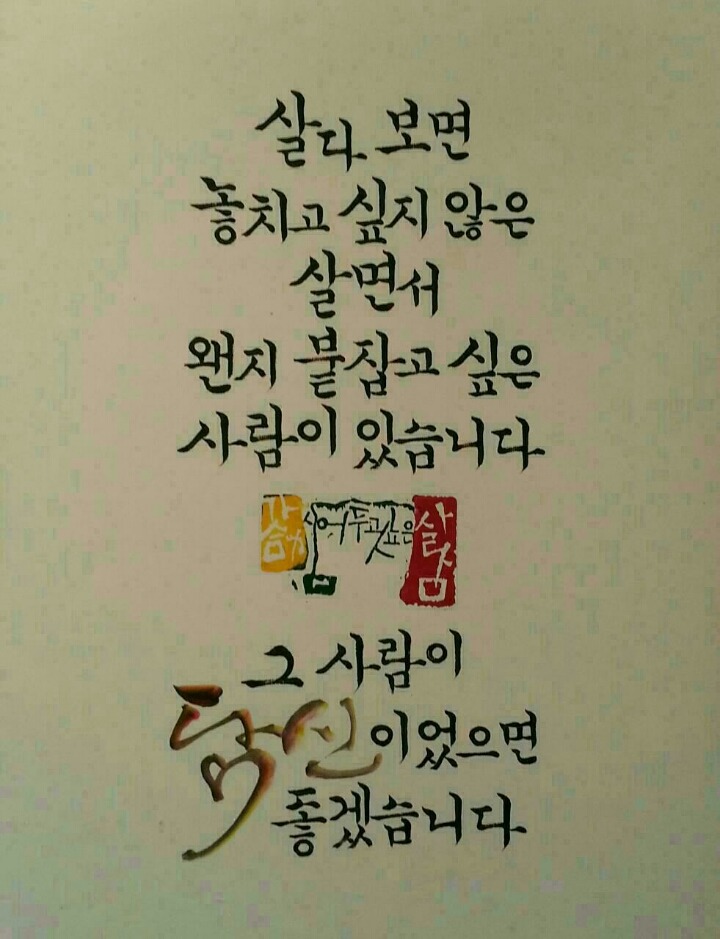 살다 보면
놓치고 싶지 않은
살면서
왠지 붙잡고 싶은
사람이 있습니다
가슴에 심어두고싶은 사람
그 사람이
당신이었으면
좋겠습니다